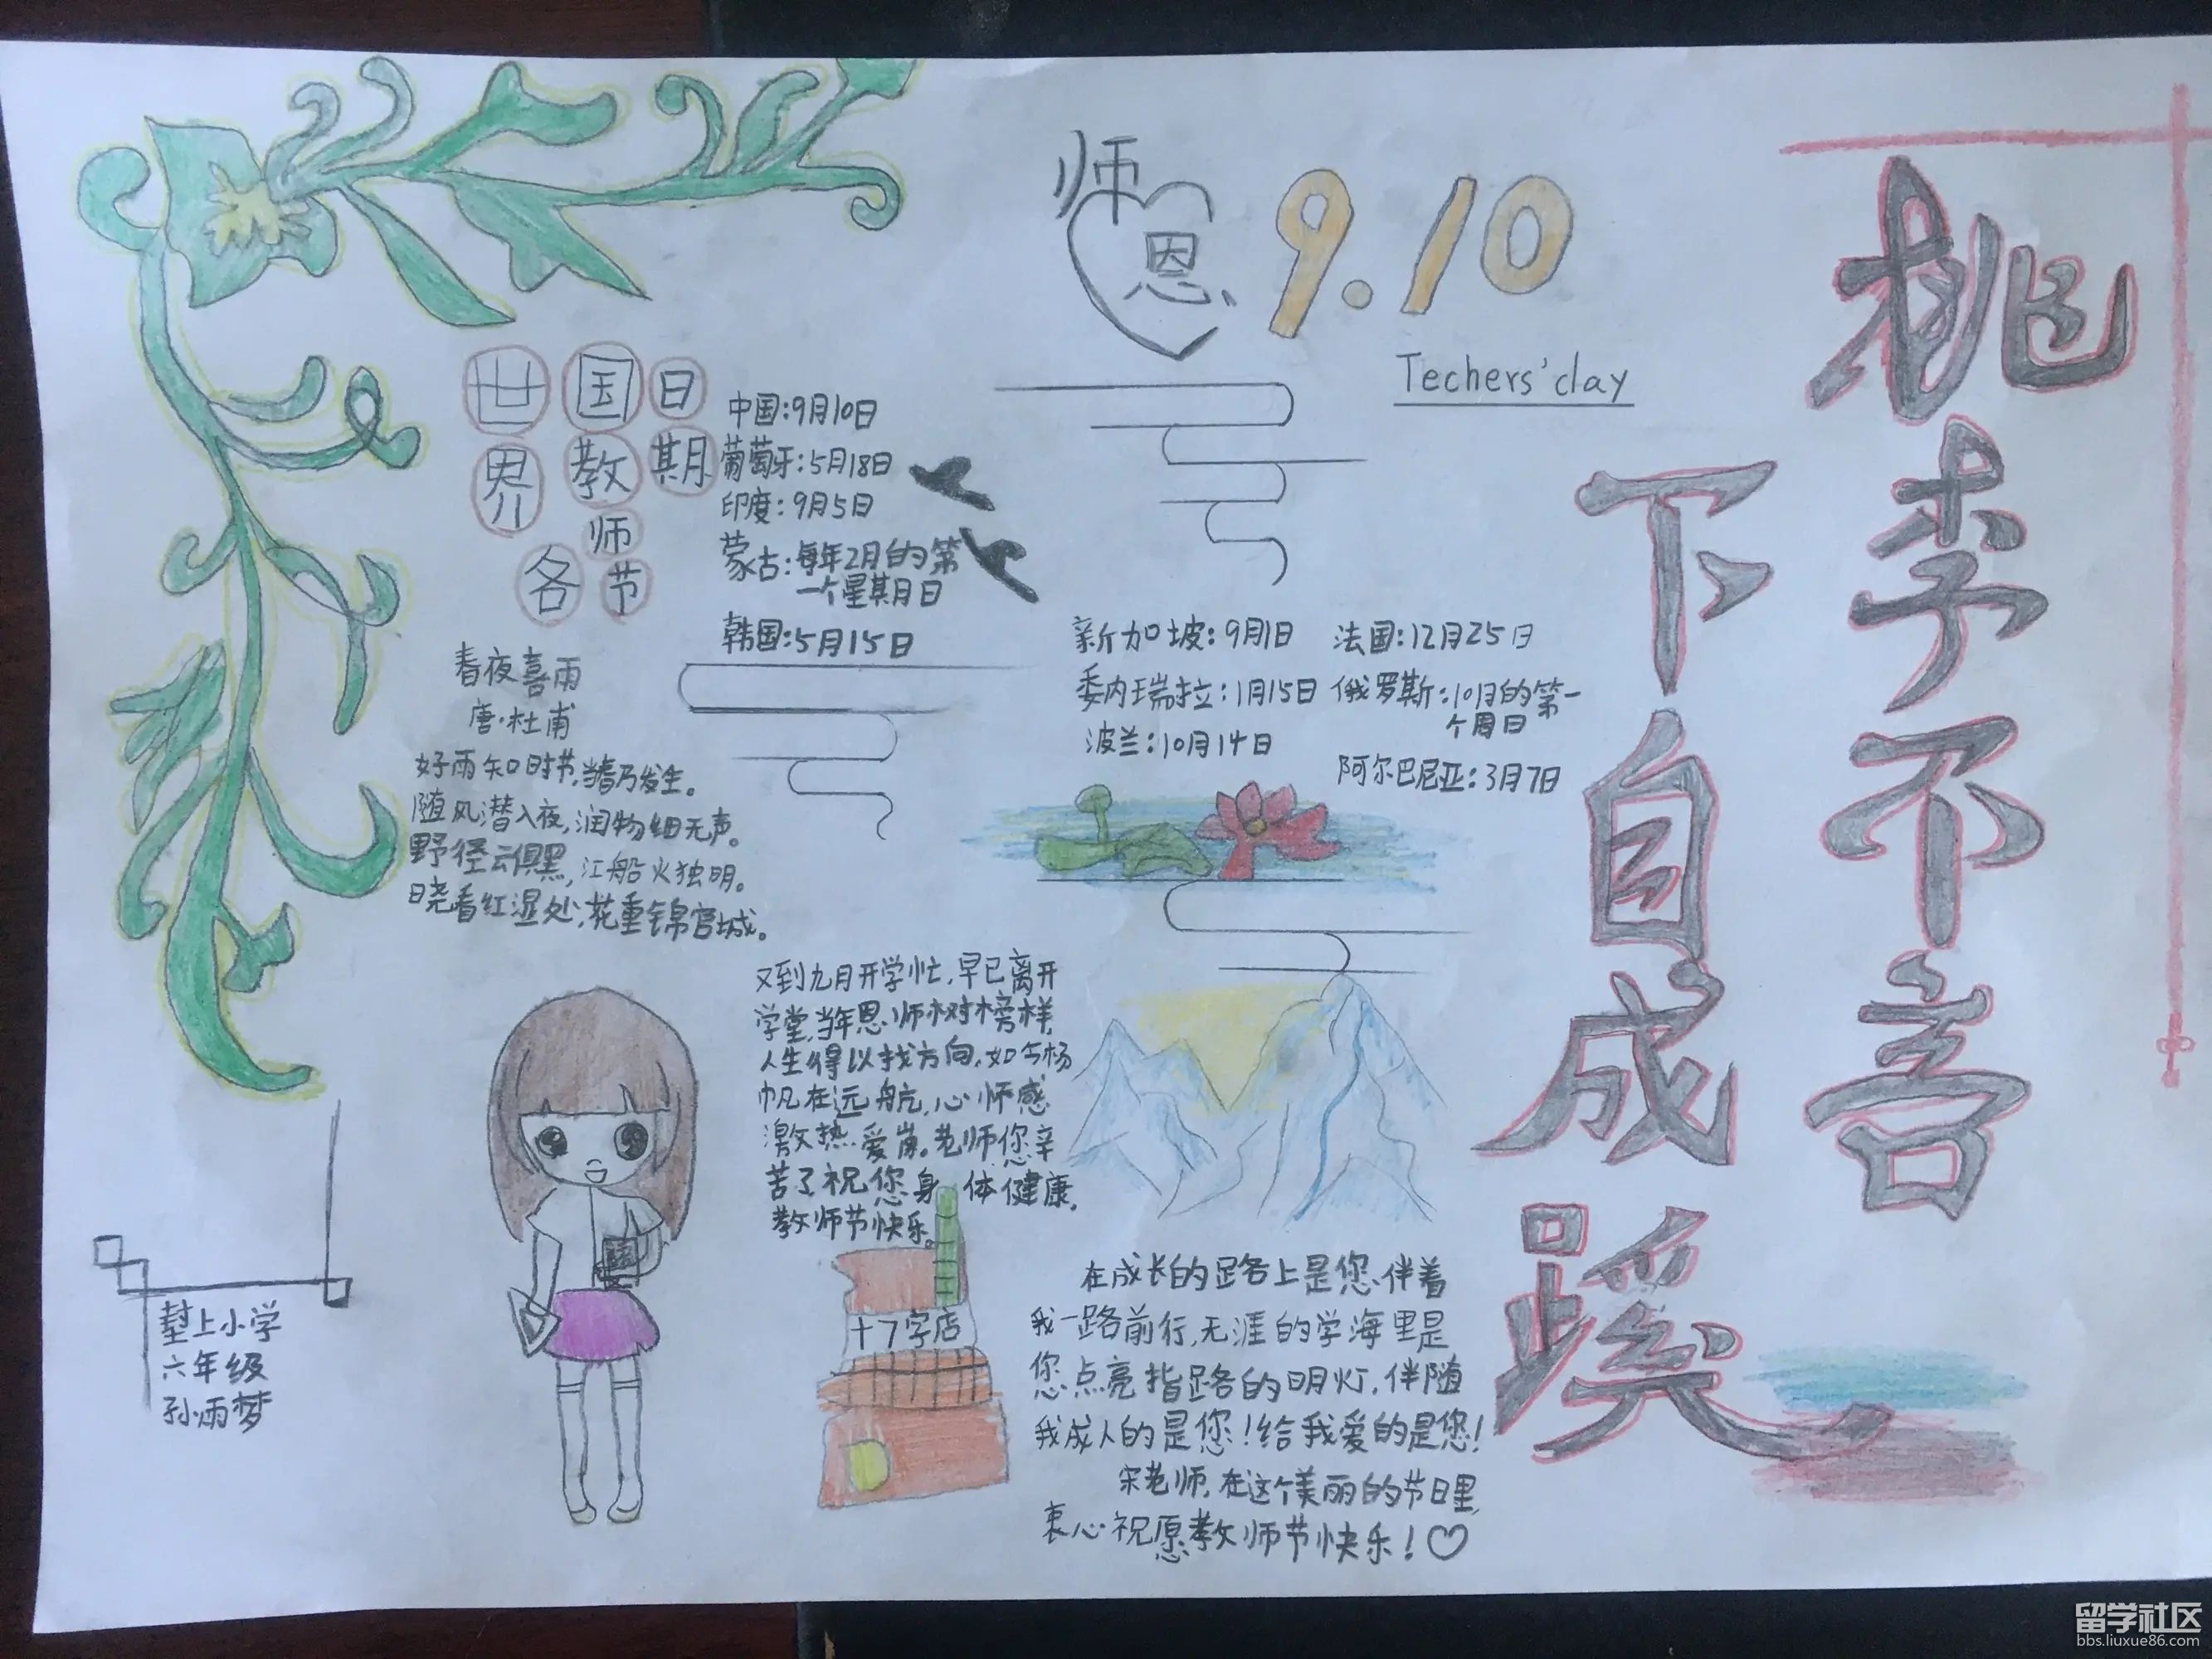 桃李不言
下自成蹊
师恩
9.10
Techers' day
世界各国教师节日期
中国:9月10日
葡萄牙:5月18日
印度:9月5日
蒙古:每年2月的第
一个星期日
韩国:5月15日
新加坡:9月1日
委内瑞拉:1月15日
波兰:10月14日
法国:12月25日
俄罗斯:10月的第一
个周日
阿尔巴尼亚:3月7日
春夜喜雨
唐·杜甫
好雨知时节,当春乃发生。
随风潜入夜,润物细无声。
野径云俱黑,江船火独明。
晓看红湿处,花重锦官城。
又到九月开学忙,早已离开
学堂,当年恩师树榜样,
人生得以找方向,如今杨
帆在远航,心师感
激热爱岗。老师您辛
苦了,祝您身体健康,
教师节快乐。
十7字店
在成长的路上是您伴着
我一路前行,无涯的学海里是
您点亮指路的明灯,伴随
我成人的是您!给我爱的是您!
宋老师,在这个美丽的节日里,
衷心祝愿教师节快乐!♡
上小学
六年级
孙雨梦
留学社区
bbs.liuxue86.com